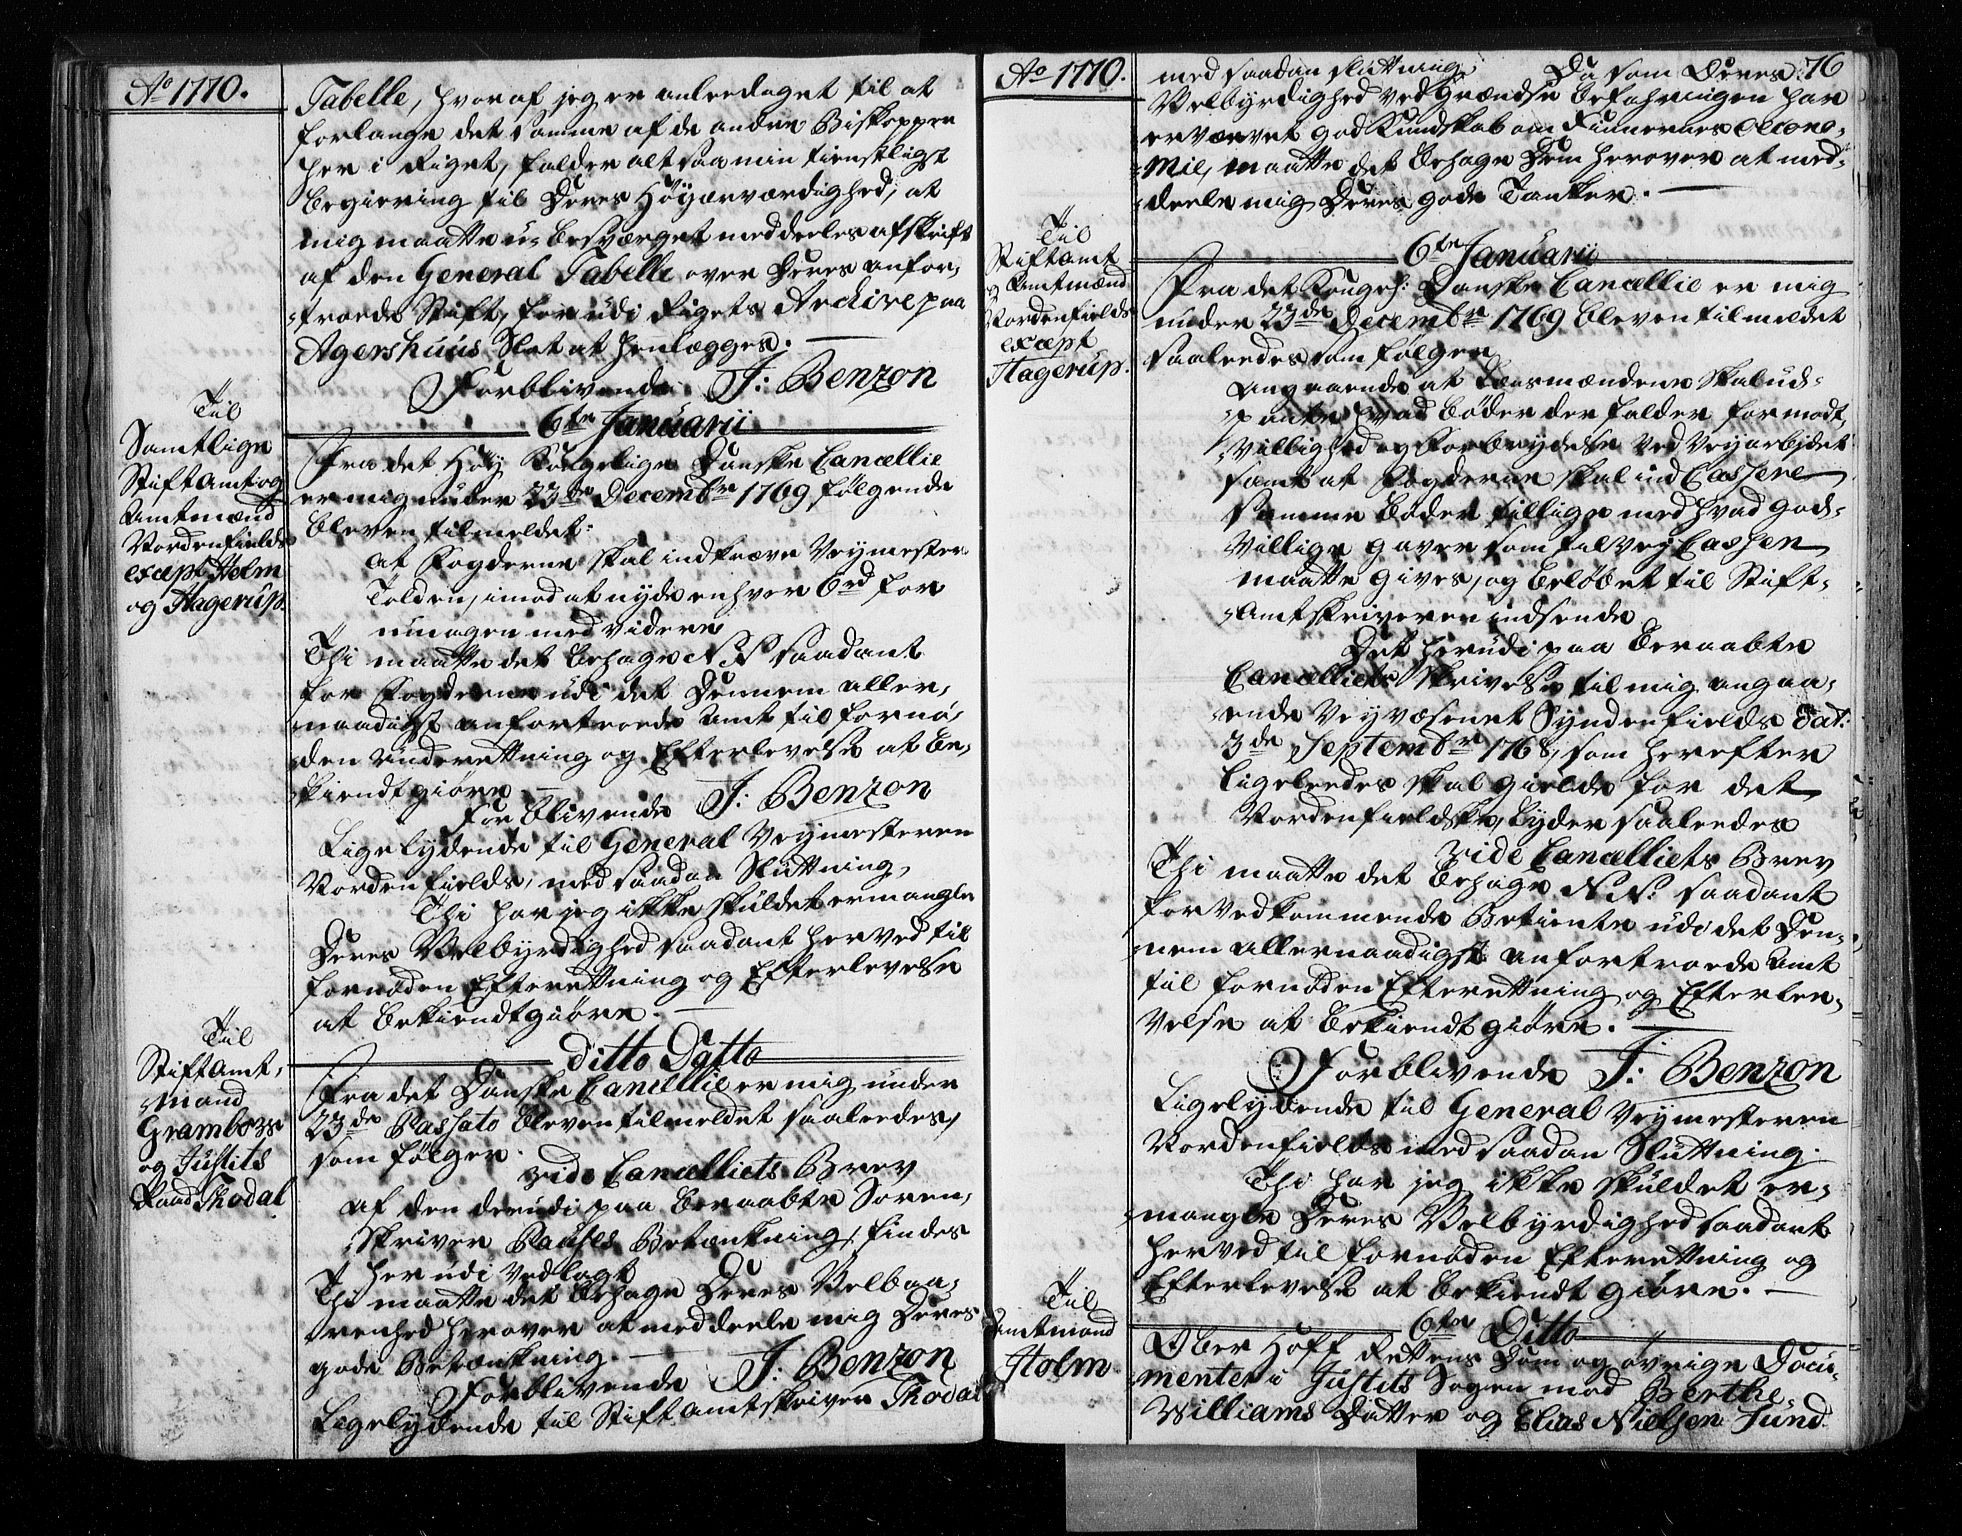 Ao 1770.
Tabelle, hvoraf jeg er anleediget til at
forlange det samme af de andre Biskopper
her i Riget, falder altsaa min tienstligst
begiering til Deres Høyærværdighed, at
mig maatte u-besværget meddeeles afskrift
af den General Tabelle over Deres anfor-
troede Stift, for udi Rigets Archive paa
Agershuus Slot at henlægges.
Forblivende J: Benzon
6te Januarii
Til
Samtlige
Stiftamt og
Amtmænd
Nordenfields
except Holm
og Hagerup.
Fra det Høy Kongelige Danske Cancellie
er mig under 23de Decembr 1769 følgende
bleven tilmeldet:
at Fogderne skal indkræve Veymester
Tolden, imod at nyde enhver 6 rd for
umagen med videre
Thi maatte det behage N N saadant
for Fogderne udi det Dennem aller-
naadigst anfortroede Amt til fornø-
den Underretning og Efterlevelse at be-
kiendtgiøre
Forblivende J: Benzon
Ligelydende til General Veymesteren
Nordenfields, med saadan Sluttning,
Thi har jeg ikke skuldet ermangle
Deres Velbyrdighed saadant herved til
fornøden Efterrettning og Efterlevelse
at bekiendtgiøre.
Ditto Datto
Til
Stiftamt-
mand
Grambow
og Justits
Raad Thodal
Fra det Danske Cancellie er mig under
23de Passato bleven tilmeldet saaledes,
som følger.
vide Cancelliets Brev
af den derudi paa beraabte Soren-
skriver Pauses Betænkning, findes
herudi vedlagt
Thi maatte det behage Deres Velbaa-
renhed herover at meddeele mig Deres
gode Betænkning.
Forblivende J: Benzon
Ligelydende til Stiftamtskriver Thodal
Ao 1770.
76
med saadan sluttning: Da som Deres
Velbyrdighed ved Grændse befahringen har
erværvet god Kundskab om Finnernes Oecono-
mie, maatte det behage Dem herover at med-
deele mig Deres gode Tanker.
6te Januarii
Til
Stiftamt
og Amtmænd
Nordenfields
except
Hagerup.
Fra det Kongel: Danske Cancellie er mig
under 23de Decembr 1769 bleven tilmeldet
saaledes som følger
angaaende at Lænsmændene skal ud-
pante hvad bøder der falder for modt-
villighed og Forbrydelse ved Veyarbejdet
samt at Fogderne skal ind Cassere
samme bøder tillige med hvad god-
villige gaver som til Vey Cassen
maatte gives, og beløbet til Stift-
Amtskriveren indsende
Det herudi paa beraabte
Cancelliets Skrivelse til mig angaa-
ende Veyvæsenet Syndenfields Dat:
3de Septembr 1768, som herefter
ligeleedes skal gielde for det
Nordenfieldske, lyder saaledes
vide Cancelliets Brev
Thi maatte det behage N. N. saadant
for Vedkommende Betiente udi det Den-
nem allernaadigst anfortroede Amt
til fornøden Efterrettning og Efterlev-
velse at bekiendtgiøre.
Forblivende J: Benzon
Ligelydende til General Veymesteren
Nordenfields med saadan Sluttning.
Thi har jeg ikke skuldet er-
mangle Deres Velbyrdighed saadant
herved til fornøden Efterrettning og
Efterlevelse at bekiendtgiøre.
6te Ditto
Til
Amtmand
Holm.
Ober Hoff Rettens Dom og øvrige Docu-
menter i Justits Sagen mod Berthe
Williams Datter og Elias Nielsen Fund